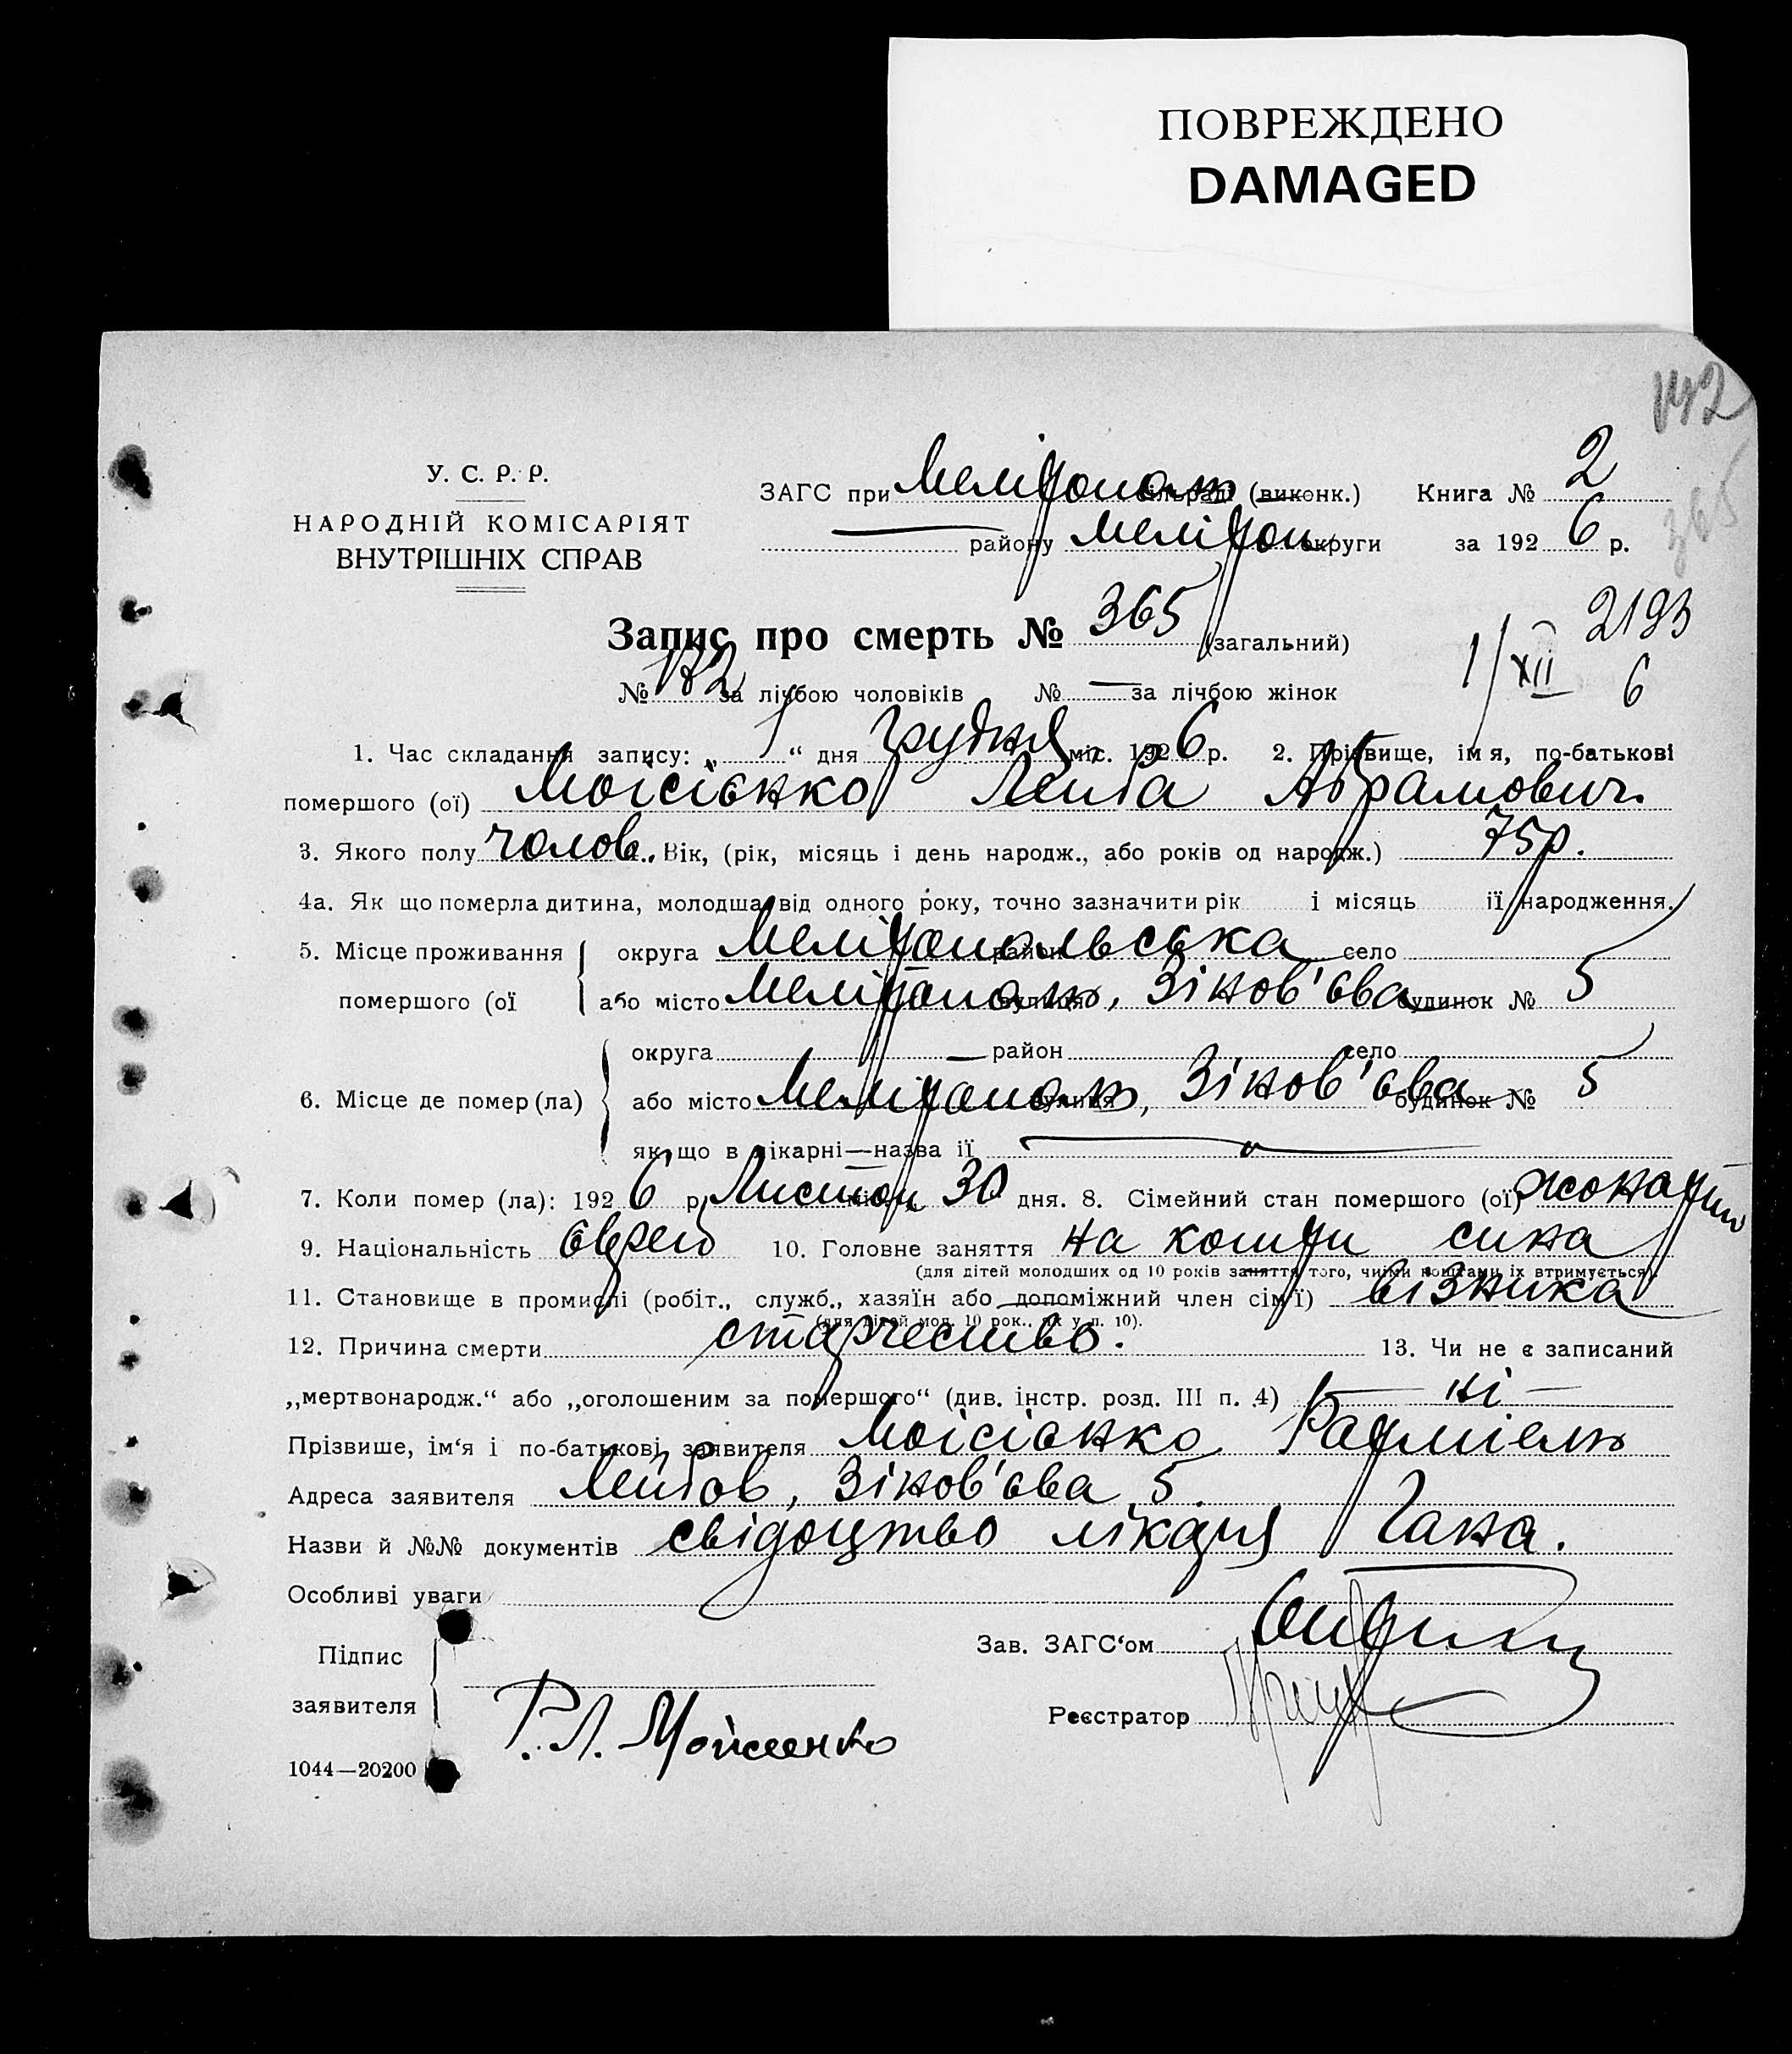 ПОВРЕЖДЕНО
DAMAGED
У. С. Р. Р.
НАРОДНІЙ КОМІСАРІЯТ
ВНУТРІШНІХ СПРАВ
ЗАГС при Мелітополь сільраді (виконк.) Книга № 2
району Мелітоп округи за 1926 р.
365
Запис про смерть № 365 (загальний)
2193
1/XII 6
№ 182 за лічбою чоловіків № — за лічбою жінок
1. Час складання запису: „1“ дня Грудня міс. 1926 р. 2. Прізвище, ім я, по-батькові
помершого (ої) Мойсієнко Лейба Абрамович
3. Якого полу чолов. Вік, (рік, місяць і день народж., або років од народж.) 75 р.
4а. Як що померла дитина, молодша від одного року, точно зазначити рік і місяць її народження.
5. Місце проживання округа Мелітопольська район село
помершого (ої або місто Мелітополь, вулиця Зінов'єва будинок № 5
округа — район село
6. Місце де помер (ла) або місто Мелітополь, вулиця Зінов'єва будинок № 5
як що в лікарні—назва її —
7. Коли помер (ла): 1926 р. Листоп. міс. 30 дня. 8. Сімейний стан помершого (ої) жонатий
9. Національність єврей 10. Головне заняття на кошти сина
(для дітей молодших од 10 років заняття того, чиїми коштами їх втримується).
11. Становище в промислі (робіт., служб., хазяїн або допоміжний член сім'ї) візника
(для дітей мол. 10 рок., як у п. 10).
12. Причина смерти старчество. 13. Чи не є записаний
„мертвонародж.“ або „оголошеним за помершого“ (див. інстр. розд. III п. 4) — ні —
Прізвише, ім‘я і по-батькові заявителя Мойсієнко
Адреса заявителя Лейбов, Зінов'єва 5.
Назви й №№ документів свідоцтво лікаря Гана.
Особливі уваги
Підпис
заявителя
Зав. ЗАГС‘ом
Р. Л. Мойсеенко
Реєстратор
1044—20200